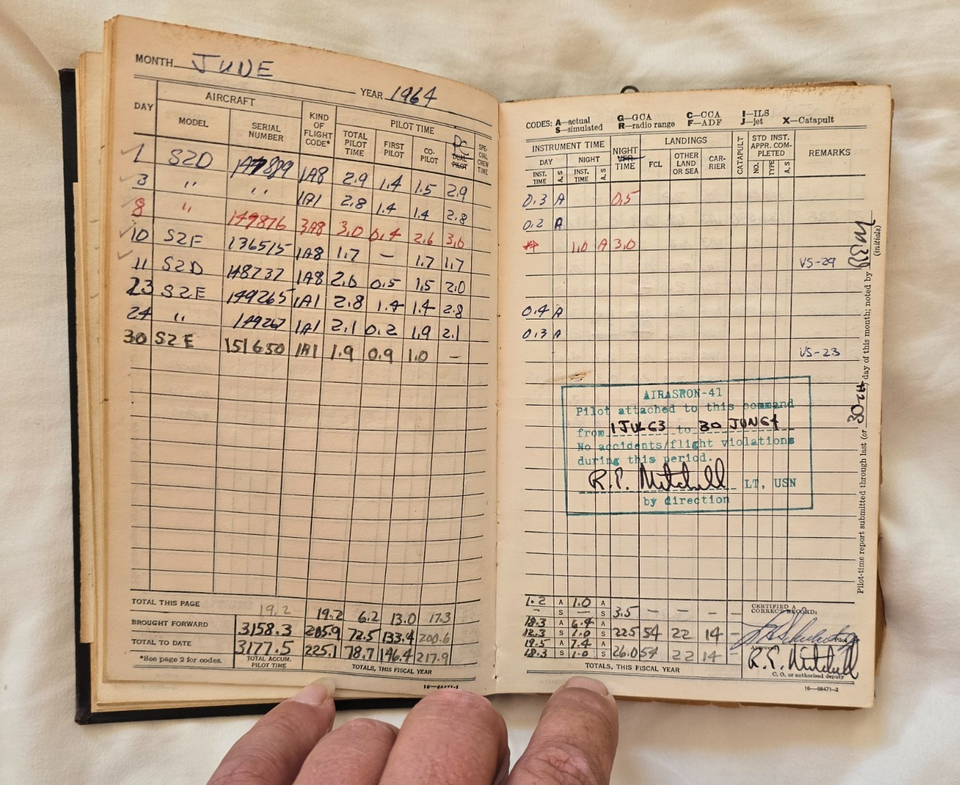 MONTH JUNE YEAR 1964
DAY AIRCRAFT KIND OF FLIGHT CODE* PILOT TIME
MODEL SERIAL NUMBER TOTAL PILOT TIME FIRST PILOT CO-PILOT SPECIAL CREW TIME
1 S2D 1A8 2.9 1.4 1.5 2.9
3 " " 1A1 2.8 1.4 1.4 2.8
8 " 149876 3A8 3.0 0.4 2.6 3.0
10 S2F 136515 1A8 1.7 — 1.7 1.7
11 S2D 148737 1A8 2.0 0.5 1.5 2.0
23 S2E 149265 1A1 2.8 1.4 1.4 2.8
24 " 149267 1A1 2.1 0.2 1.9 2.1
30 S2E 151650 1A1 1.9 0.9 1.0 —
TOTAL THIS PAGE 19.2 19.2 6.2 13.0 17.3
BROUGHT FORWARD 3158.3 205.9 72.5 133.4 200.6
TOTAL TO DATE 3177.5 225.1 78.7 146.4 217.9
*See page 2 for codes. TOTAL ACCUM. PILOT TIME TOTALS, THIS FISCAL YEAR
CODES: A—actual G—GCA C—CCA I—ILS
S—simulated R—radio range F—ADF J—jet X—Catapult
INSTRUMENT TIME NIGHT TIME LANDINGS CATAPULT STD INST. APPR. COMPLETED REMARKS
DAY NIGHT FCL OTHER LAND OR SEA CARRIER
INST. TIME A, S INST. TIME A, S NO. TYPE A, S
0.3 A 0.5
0.2 A
1.0 A 3.0
VS-29
0.4 A
0.3 A
VS-23
AIRASRON-41
Pilot attached to this command
from 1 JUL 63 to 30 JUN 64
No accidents/flight violations
during this period.
R.P. Mitchell LT, USN
by direction
Pilot-time report submitted through last (or 30TH) day of this month; noted by
(initials)
1.2 A 1.0 A
— S — S 3.5 — — — —
18.3 A 6.4 A
12.3 S 1.0 S 22.5 54 22 14 —
19.5 A 7.4 A
12.3 S 1.0 S 26.0 54 22 14 —
CERTIFIED A CORRECT RECORD:
R.P. Mitchell
C. O. or authorized deputy
TOTALS, THIS FISCAL YEAR